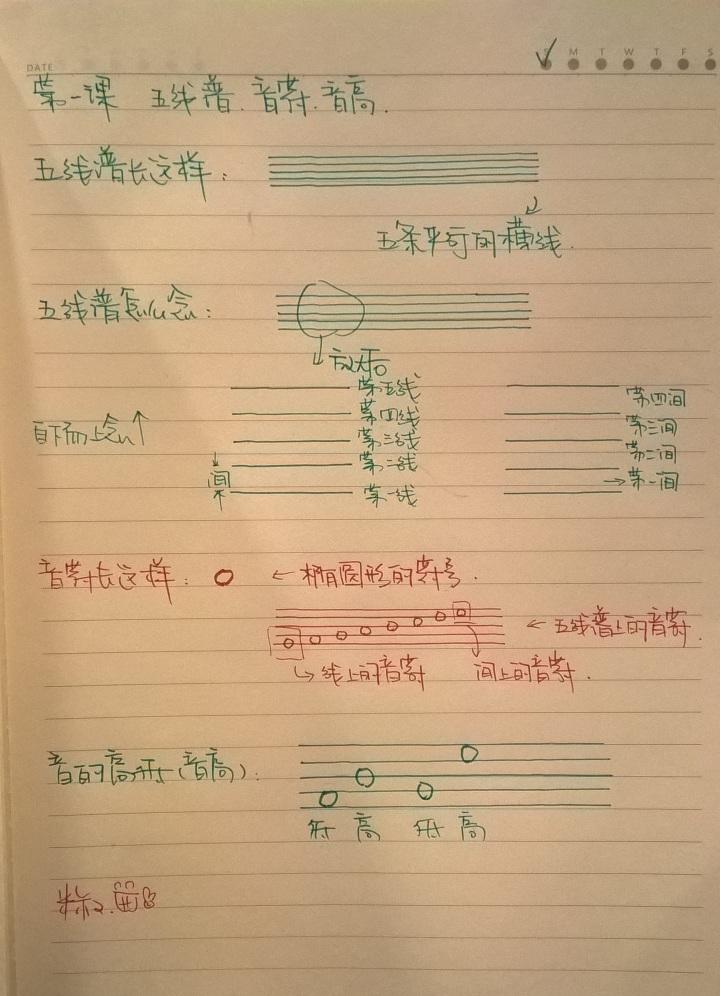 DATE
S M T W T F S
第一课 五线谱.音符.音高.
五线谱长这样:
五条平行的横线.
五线谱怎么念:
放大后
自下而上念↑
第五线
第四线
第三线
第二线
第一线
间
第四间
第三间
第二间
→第一间
音符长这样: ← 椭圆形的符号.
← 五线谱上的音符.
线上的音符 间上的音符.
音的高低(音高):
低 高 低 高